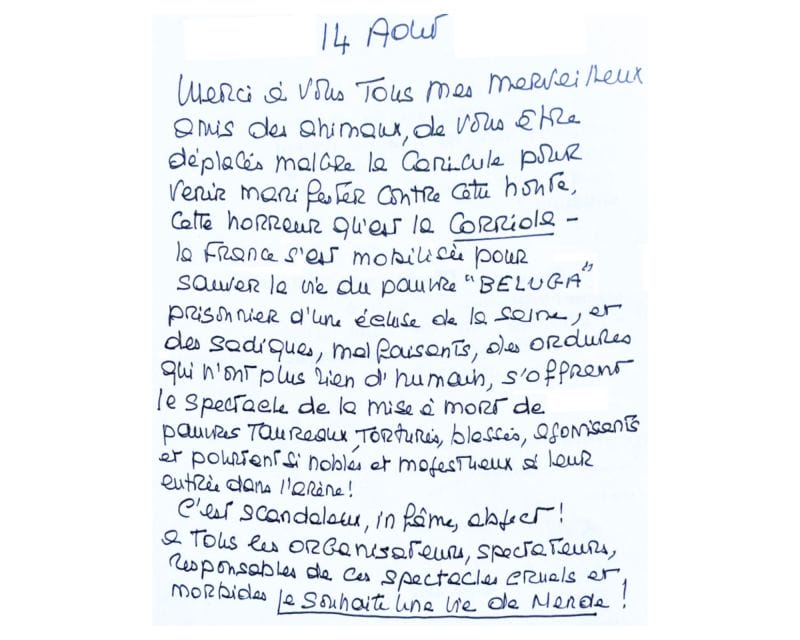 14 Août
Merci à vous Tous mes merveilleux
amis des animaux, de vous être
déplacés malgré la Canicule pour
venir manifester contre cette honte,
cette horreur qu'est la Corrida -
la France s'est mobilisée pour
sauver la vie du pauvre "BELUGA"
prisonnier d'une écluse de la seine, et
des sadiques, malfaisants, des ordures
qui n'ont plus rien d'humain, s'offrent
le spectacle de la mise à mort de
pauvres Taureaux, torturés, blessés, agonisants
et pourtant si nobles et majestueux à leur
entrée dans l'arène !
C'est scandaleux, infâme, abject !
a Tous les organisateurs, spectateurs,
responsables de ces spectacles cruels et
morbides je souhaite une vie de Merde !